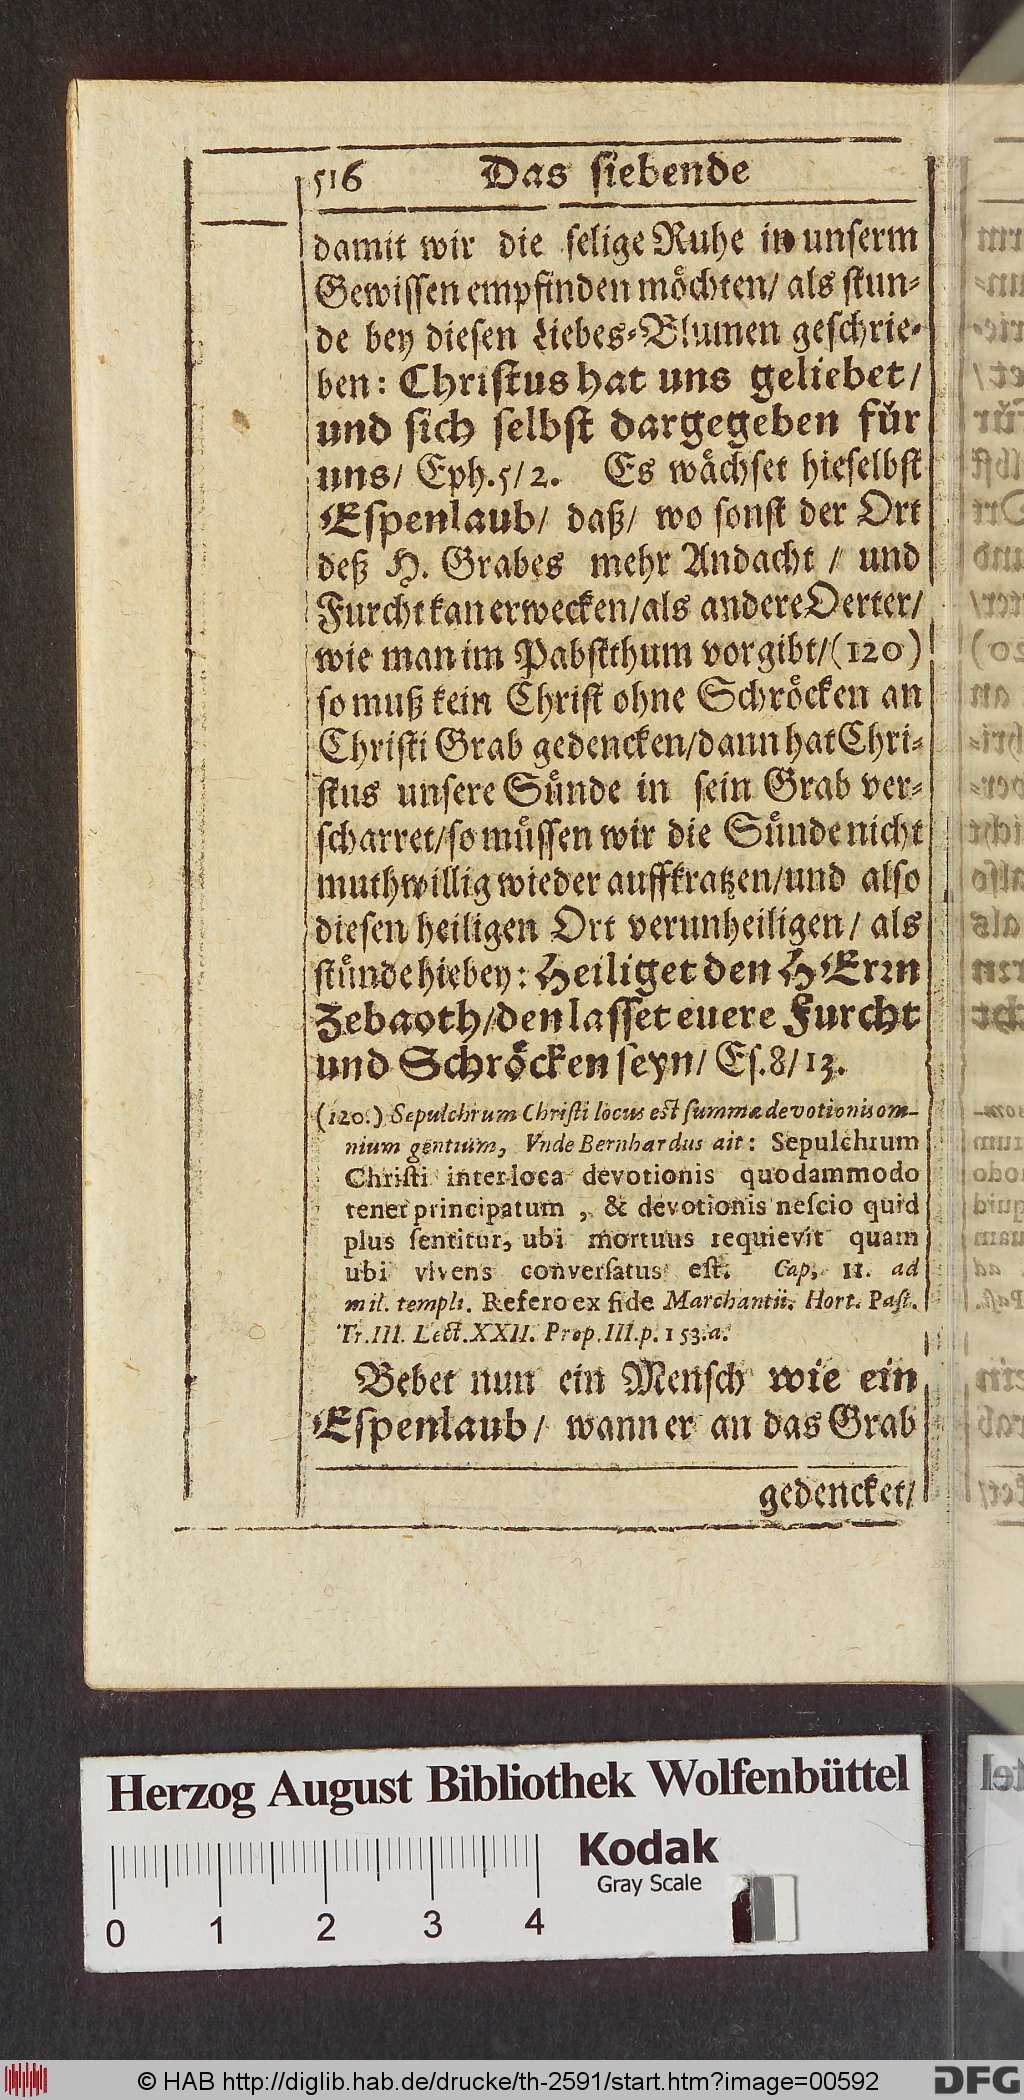 516 Das siebende
damit wir die selige Ruhe in unserm
Gewissen empfinden möchten/ als stun-
de bey diesen Liebes-Blumen geschrie-
ben: Christus hat uns geliebet/
und sich selbst dargegeben für
uns/ Eph. 5/ 2. Es wächset hieselbst
Espenlaub/ daß/ wo sonst der Ort
deß H. Grabes mehr Andacht / und
Furcht kan erwecken/ als andere Oerter/
wie man im Pabstthum vorgibt/ (120)
so muß kein Christ ohne Schröcken an
Christi Grab gedencken/ dann hat Chri-
stus unsere Sünde in sein Grab ver-
scharret/ so müssen wir die Sünde nicht
muthwillig wieder auffkratzen/ und also
diesen heiligen Ort verunheiligen/ als
stünde hiebey: Heiliget den HErrn
Zebaoth/ den lasset euere Furcht
und Schröcken seyn/ Es. 8/ 13.
(120.) Sepulchrum Christi locus est summæ devotionis om-
nium gentium, Vnde Bernhardus ait: Sepulchrum
Christi inter loca devotionis quodammodo
tenet principatum, & devotionis nescio quid
plus sentitur, ubi mortuus requievit quam
ubi vivens conversatus est. Cap. 11. ad
mil. templi. Refero ex fide Marchantii. Hort. Past.
Tr. III. Lect. XXII. Prop. III. p. 153. a.
Bebet nun ein Mensch wie ein
Espenlaub/ wann er an das Grab
gedencket/
Herzog August Bibliothek Wolfenbüttel
Kodak
Gray Scale
0 1 2 3 4
© HAB http://diglib.hab.de/drucke/th-2591/start.htm?image=00592
DFG